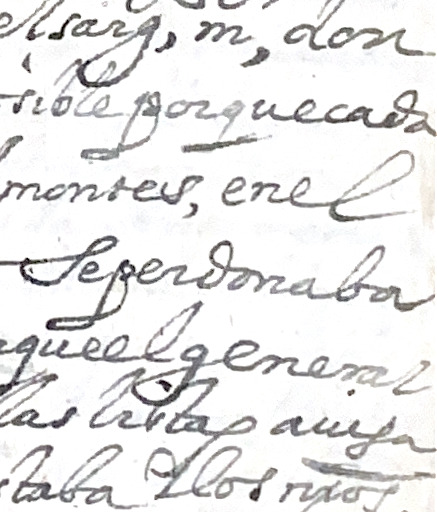 el sarg, m, don
sible porque cada
montes, en el
Se perdonaba
que el general
las listas auisa
staba Ylos nros